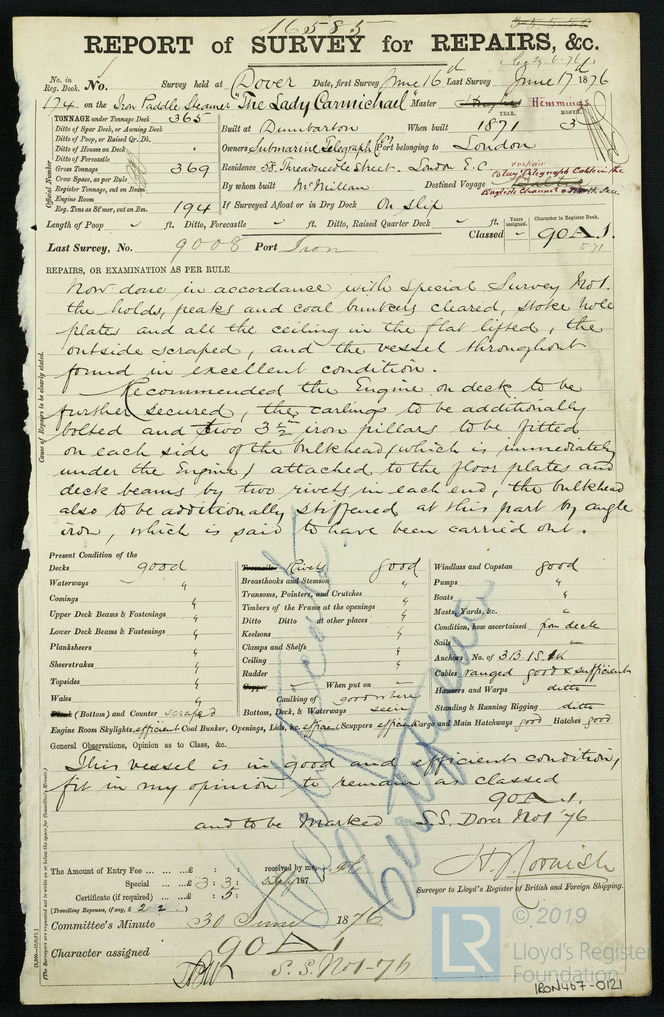 16585
REPORT of SURVEY for REPAIRS, &c.
No. in Reg. Book. No. Survey held at Dover Date, first Survey June 16th Last Survey June 17th 1876
174 on the Iron Paddle Steamer "The Lady Carmichael" Master Hemmings
TONNAGE under Tonnage Deck 365
Ditto of Spar Deck, or Awning Deck
Ditto of Poop, or Raised Qr. Dk.
Ditto of Houses on Deck
Ditto of Forecastle
Gross Tonnage 369
Crew Space, as per Rule
Register Tonnage, cut on Beam
Engine Room
Reg. Tons as St'mer, cut on Bm. 194
Official Number
YEAR. MONTH.
Built at Dumbarton When built 1871 3
Owners Submarine Telegraph Co Port belonging to London
Residence 58, Threadneedle Street. London E.C
By whom built McMillan Destined Voyage
& repair Telegraph Cables in the English Channel & North Sea
If Surveyed Afloat or in Dry Dock On slip
Length of Poop ft. Ditto, Forecastle ft. Ditto, Raised Quarter Deck ft.
Years assigned. Character in Register Book.
Classed 90A.1.
5 71
Last Survey, No. 9008 Port Iron
REPAIRS, OR EXAMINATION AS PER RULE
Now done in accordance with Special Survey No1.
the holds, peaks and coal bunkers cleared, stoke hole
plates and all the ceiling in the flat lifted, the
outside scraped, and the vessel throughout
found in excellent condition.
Recommended the Engine on deck to be
further secured, the carlings to be additionally
bolted and two 3 1/2 in iron pillars to be fitted
on each side of the bulkhead (which is immediately
under the Engine) attached to the floor plates and
deck beams by two rivets in each end, the bulkhead
also to be additionally stiffened at this part by angle
iron, which is said to have been carried out.
Cause of Repairs to be clearly stated.
Present Condition of the
Decks good
Waterways "
Comings "
Upper Deck Beams & Fastenings "
Lower Deck Beams & Fastenings "
Planksheers "
Sheerstrakes "
Topsides "
Wales "
(Bottom) and Counter scraped
Treenails Rivets good
Breasthooks and Stemson "
Transoms, Pointers, and Crutches "
Timbers of the Frame at the openings "
Ditto Ditto at other places "
Keelsons "
Clamps and Shelfs "
Ceiling "
Rudder "
Copper When put on
Caulking of Bottom, Deck, & Waterways good where seen
Windlass and Capstan good
Pumps "
Boats "
Masts, Yards, &c. "
Condition, how ascertained from deck
Sails "
Anchors No. of 3B. 1S. 1K
Cables ranged good & sufficient
Hawsers and Warps ditto
Standing & Running Rigging ditto
Engine Room Skylights efficient Coal Bunker, Openings, Lids, &c. efficient Scuppers efficient Cargo and Main Hatchways good Hatches good
General Observations, Opinion as to Class, &c.
This vessel is in good and efficient condition,
fit in my opinion to remain as classed
90A.1.
and to be marked S.S. Dover No1 76.
The Amount of Entry Fee £ : : received by me,
Special £ 3 : 3 : July 187
Certificate (if required) £ : 5 :
(Travelling Expenses, if any, £ 2 2 )
Surveyor to Lloyd's Register of British and Foreign Shipping.
Committee's Minute 30 June 1876
Character assigned 90A.1
S.S. No1-76
LR
© 2019
Lloyd's Register
Foundation
IRON467-0121